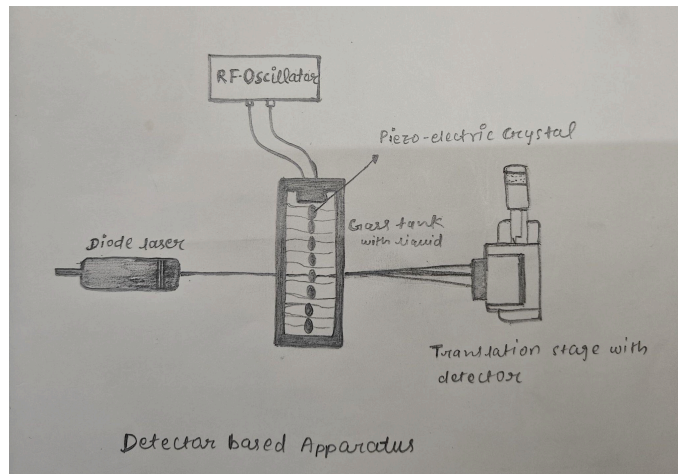 RF-Oscillator
Piezo-electric Crystal
Glass tank
with liquid
Diode laser
Translation stage with
detector
Detector based Apparatus